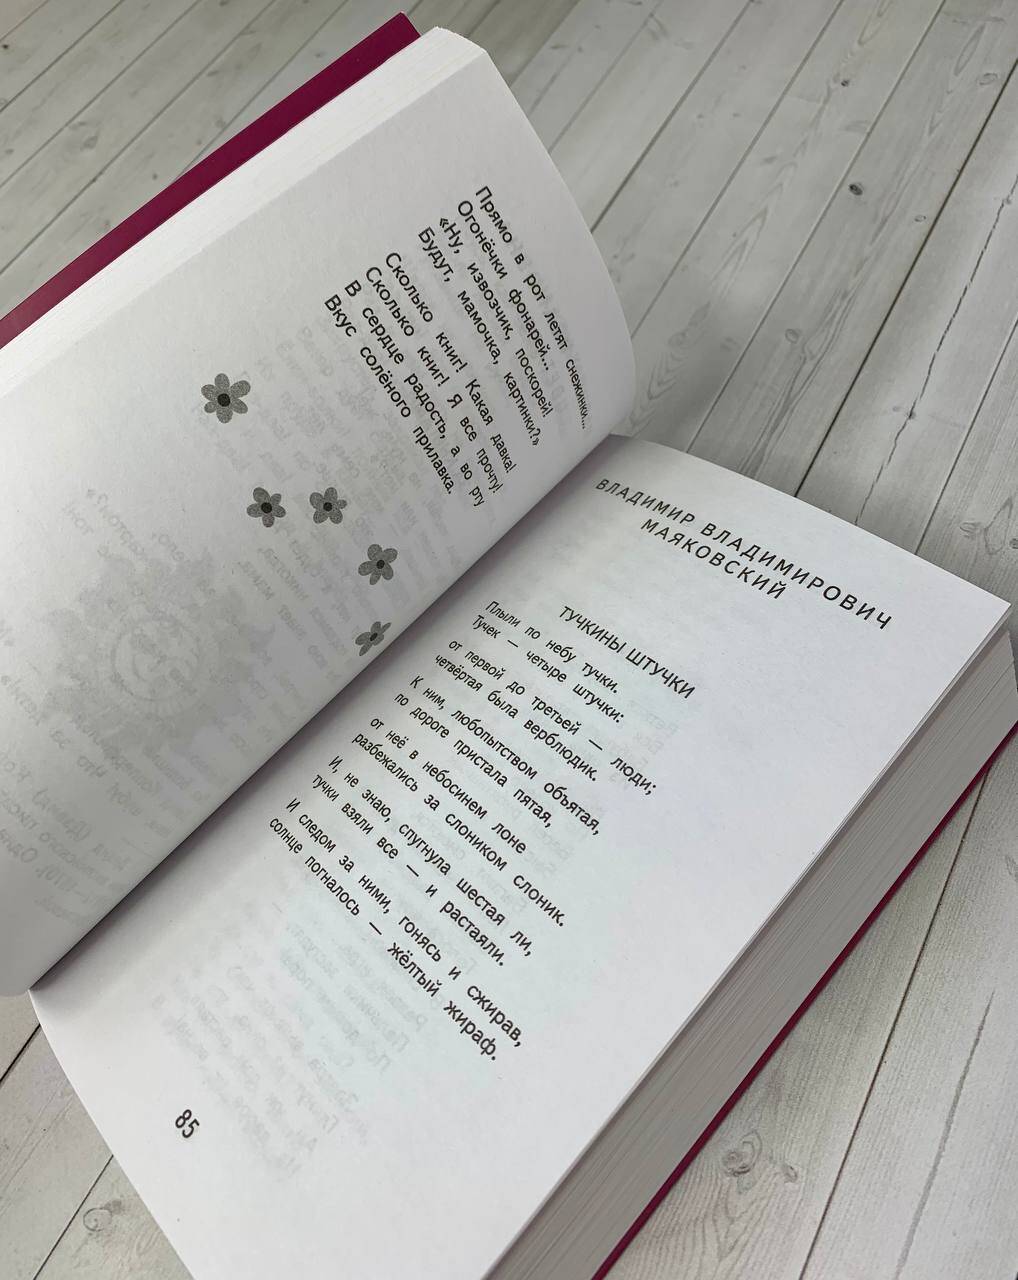 Прямо в рот летят снежинки...
Огонёчки фонарей...
«Ну, извозчик, поскорей!
Будут, мамочка, картинки?»
Сколько книг! Какая давка!
Сколько книг! Я все прочту!
В сердце радость, а во рту
Вкус солёного прилавка.
ВЛАДИМИР ВЛАДИМИРОВИЧ
МАЯКОВСКИЙ
ТУЧКИНЫ ШТУЧКИ
Плыли по небу тучки.
Тучек — четыре штучки:
от первой до третьей — люди;
четвёртая была верблюдик.
К ним, любопытством объятая,
по дороге пристала пятая,
от неё в небосинем лоне
разбежались за слоником слоник.
И, не знаю, спугнула шестая ли,
тучки взяли все — и растаяли.
И следом за ними, гонясь и сжирав,
солнце погналось — жёлтый жираф.
85